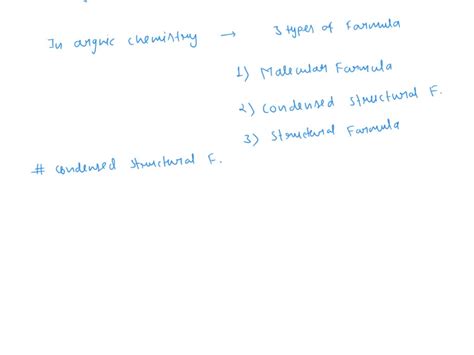 In orgnic chemistry → 3 types of Formula
1) Molecular Formula
2) Condensed structural F.
3) Structural Formula
# Condensed structural F.